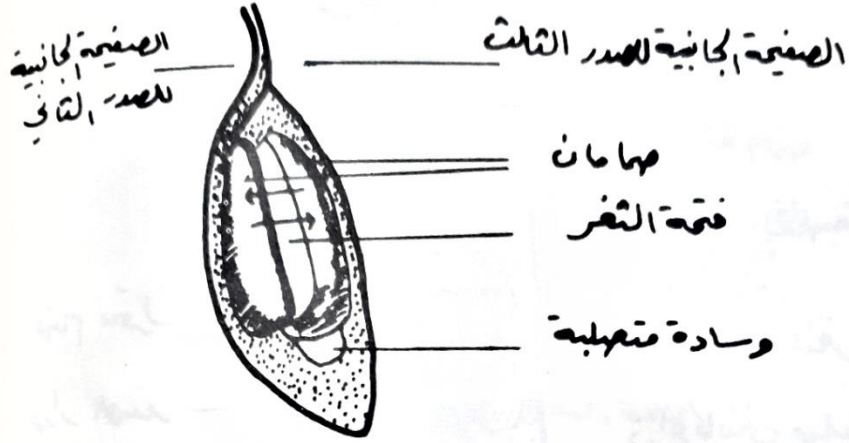 الصفيحة الجانبية للصدر الثالث
الصفيحة الجانبية
للصدر الثاني
صمامان
فتحة الثغر
وسادة متصلبة